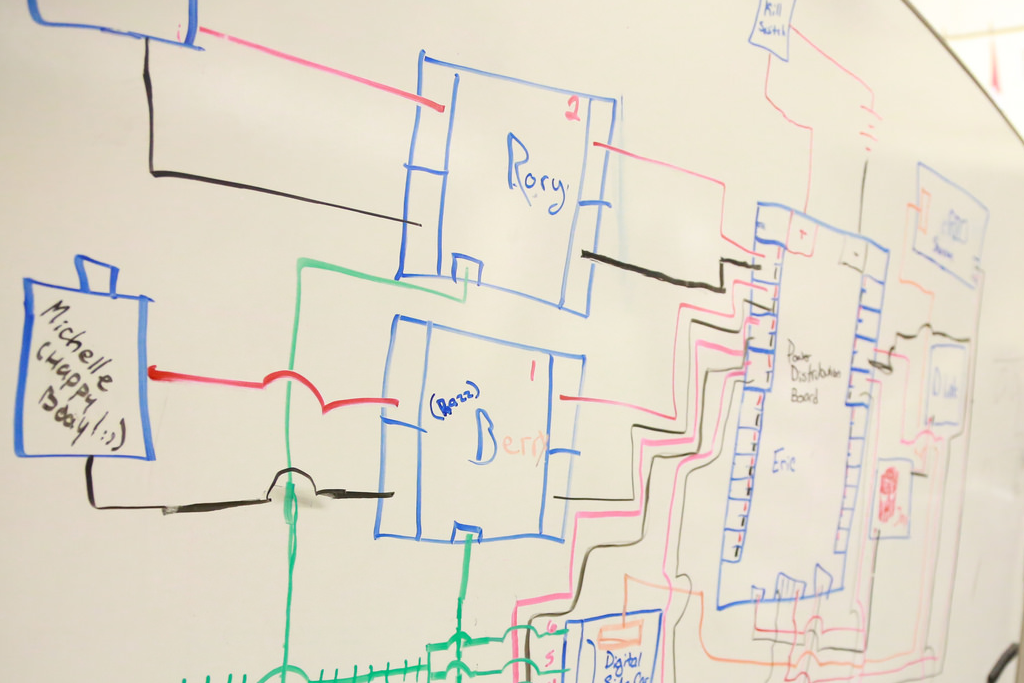 Kill
Switch
2
Rory
Michelle
(Happy
Bday! :))
1
(Razz)
Berry
Power
Distribution
Board
Eric
6
5
Digital